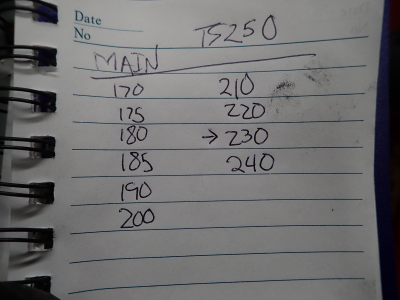 Date
TS250
No
MAIN
170 210
175 220
180 → 230
185 240
190
200